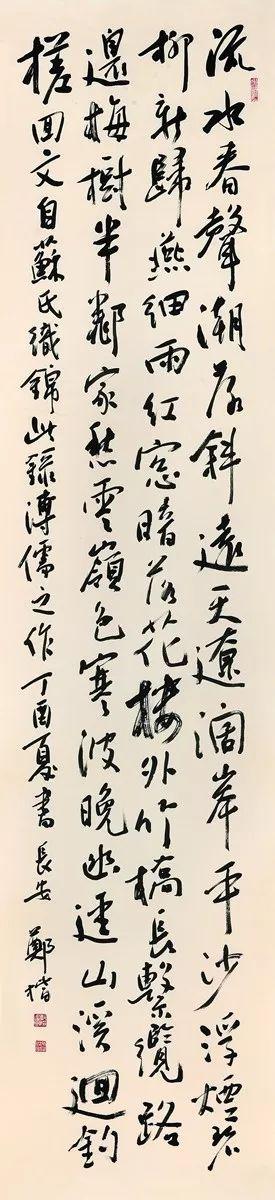 流水春聲潮落斜遠天遼闊岸平沙浮煙碧
柳新歸燕細雨紅窗暗落花樓外竹橋長繫纜路
邊梅樹半鄰家愁雲嶺色寒波晚幽逕山溪迴釣
槎回文自蘇氏織錦此錄溥儒之作丁酉夏書長安鄭